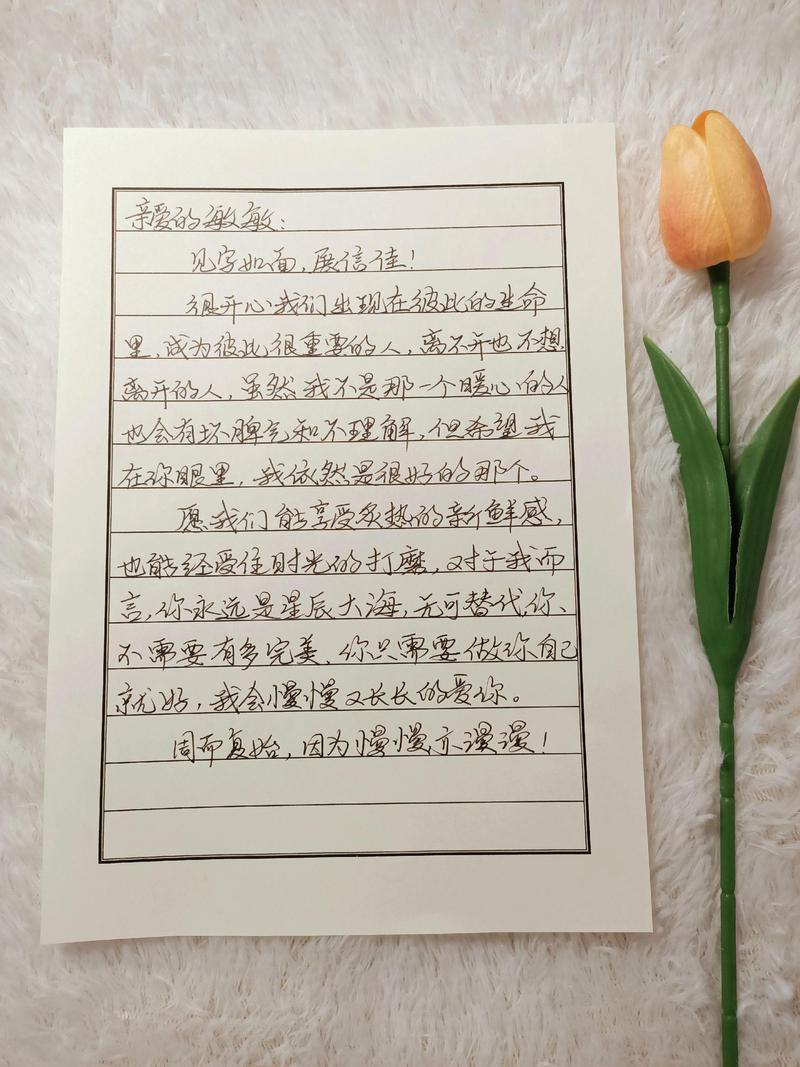 亲爱的敏敏:
见字如面,展信佳!
很开心我们出现在彼此的生命
里,成为彼此很重要的人,离不开也不想
离开的人,虽然我不是那一个暖心的人
也会有坏脾气和不理解,但希望我
在你眼里,我依然是很好的那个。
愿我们能享受炙热的新鲜感,
也能经受住时光的打磨,对于我而
言,你永远是星辰大海,无可替代,你、
不需要有多完美,你只需要做你自己
就好,我会慢慢又长长的爱你。
周而复始,因为慢慢亦漫漫!